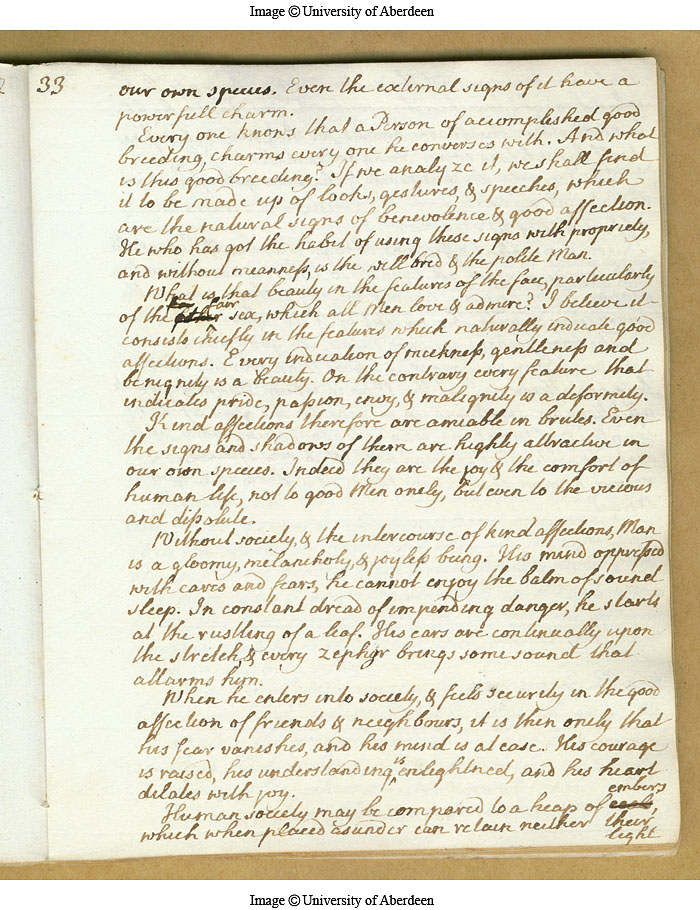 Image © University of Aberdeen
33
our own species. Even the external signs of it have a
powerfull charm.
Every one knows that a Person of accomplished good
breeding, charms every one he converses with. And what
is this good breeding? If we analyze it, we shall find
it to be made up of looks, gestures, & speeches, which
are the natural signs of benevolence & good affection.
He who has got the habit of using these signs with propriety,
and without meanness, is the well bred & the polite Man.
What is that beauty in the features of the face, particularly
fair
of the other sex, which all Men love & admire? I believe it
consists chiefly in the features which naturally indicate good
affections. Every indication of meekness, gentleness and
benignity is a beauty. On the contrary every feature that
indicates pride, passion, envy, & malignity is a deformity.
Kind affections therefore are amiable in brutes. Even
the signs and shadows of them are highly attractive in
our own species. Indeed they are the joy & the comfort of
human life, not to good Men onely, but even to the vicious
and dissolute.
Without society, & the intercourse of kind affections, Man
is a gloomy, melancholy, & joyless being. His mind oppressed
with cares and fears, he cannot enjoy the balm of sound
sleep. In constant dread of impending danger, he starts
at the rustling of a leaf. His ears are continually upon
the stretch, & every zephyr brings some sound that
allarms him.
When he enters into society, & feels security in the good
affection of friends & neighbours, it is then onely that
his fear vanishes, and his mind is at ease. His courage
is raised, his understanding is enlightned, and his heart
dilates with joy.
embers
Human society may be compared to a heap of coals,
which when placed asunder can retain neither their
light
Image © University of Aberdeen